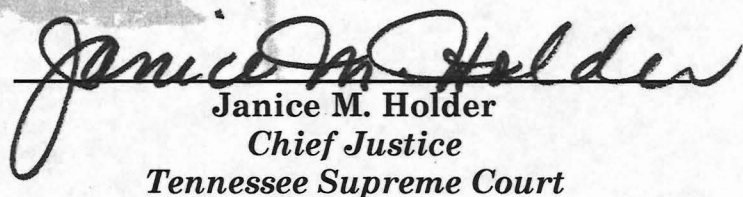 Janice M. Holder
Janice M. Holder
Chief Justice
Tennessee Supreme Court